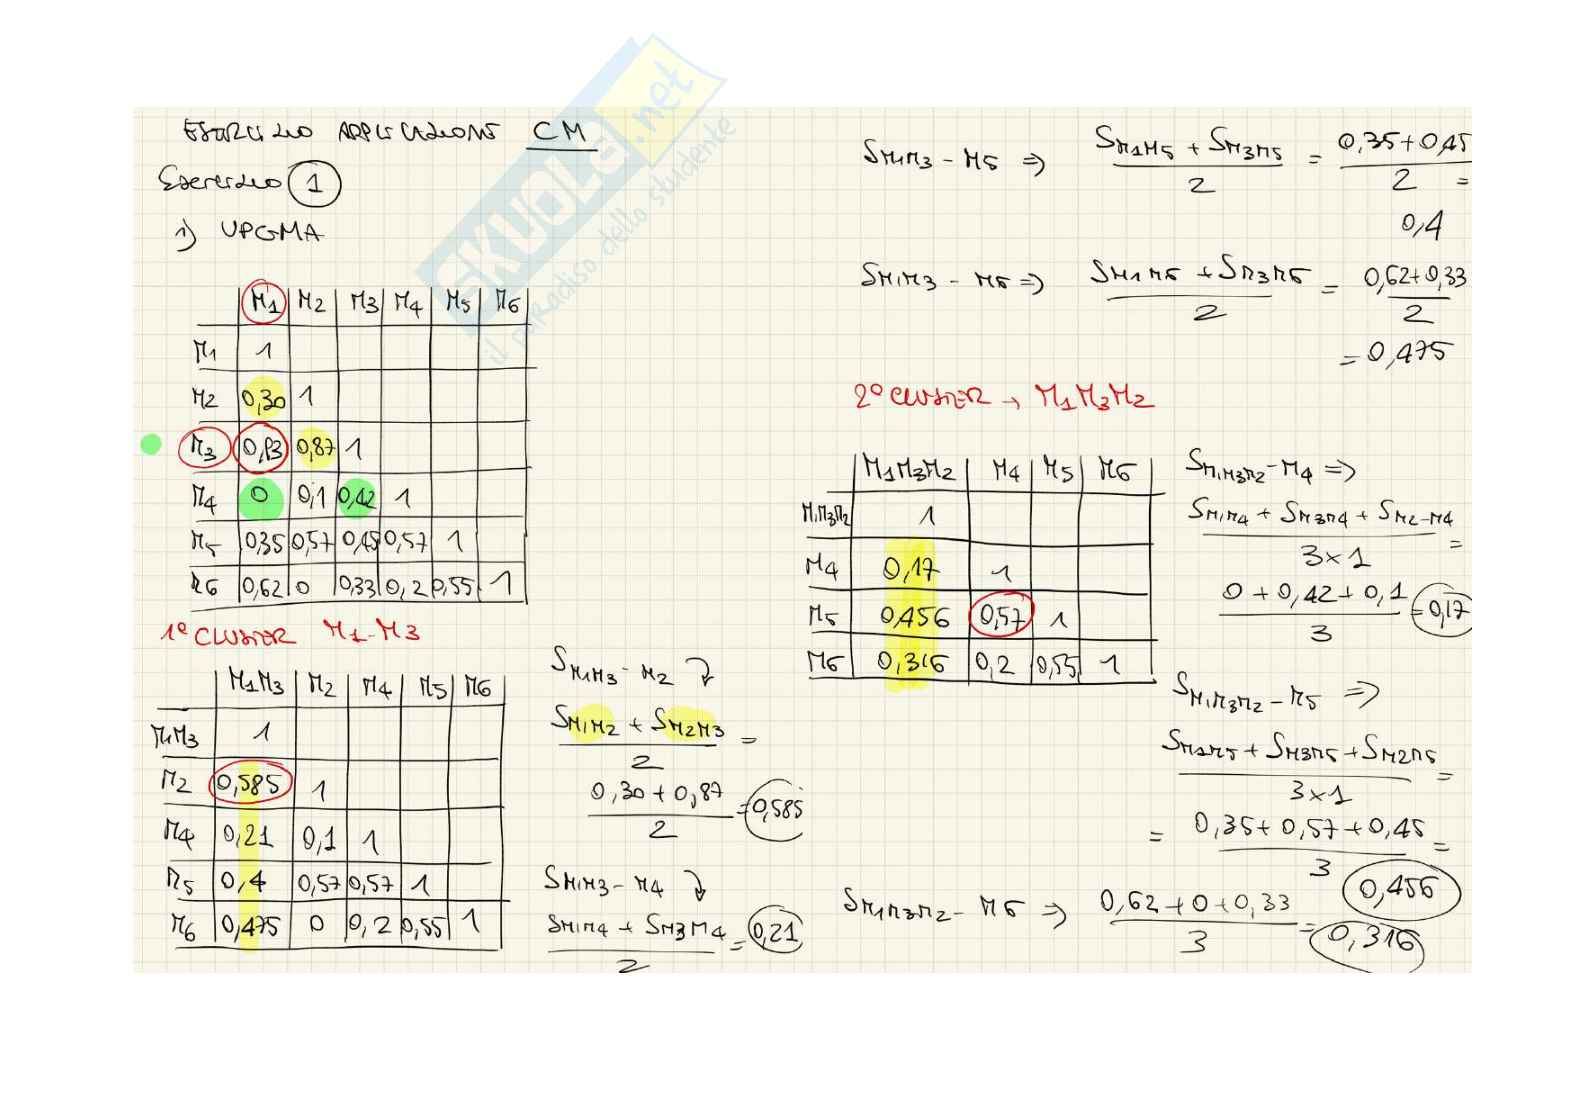 ESERCIZIO APPLICAZIONE CM
Esercizio 1
1) UPGMA
M1 M2 M3 M4 M5 M6
M1 1
M2 0,30 1
M3 0,87 1
M4 0 0,1 0,42 1
M5 0,35 0,57 0,45 0,57 1
M6 0,62 0 0,33 0,2 0,55 1
1° CLUSTER M1-M3
M1M3 M2 M4 M5 M6
M1M3 1
M2 0,585 1
M4 0,21 0,1 1
M5 0,4 0,57 0,57 1
M6 0,475 0 0,2 0,55 1
SM1M3 - M2
SM1M2 + SM2M3 =
2
0,30 + 0,87 = 0,585
2
SM1M3 - M4
SM1M4 + SM3M4 = 0,21
2
SM1M3 - M5 ⇒ SM1M5 + SM3M5 = 0,35+0,45
2 2 =
0,4
SM1M3 - M6 ⇒ SM1M6 + SM3M6 = 0,62+0,33
2 2
= 0,475
2° CLUSTER → M1M3M2
M1M3M2 M4 M5 M6
M1M3M2 1
M4 0,17 1
M5 0,456 0,57 1
M6 0,316 0,2 0,55 1
SM1M3M2-M4 ⇒
SM1M4 + SM3M4 + SM2-M4 =
3x1
0 + 0,42 + 0,1 = 0,17
3
SM1M3M2 - M5 ⇒
SM1M5 + SM3M5 + SM2M5 =
3x1
= 0,35 + 0,57 + 0,45 =
3
0,456
SM1M3M2 - M6 ⇒ 0,62 + 0 + 0,33 = 0,316
3
SKUOLA.net
il paradiso dello studente